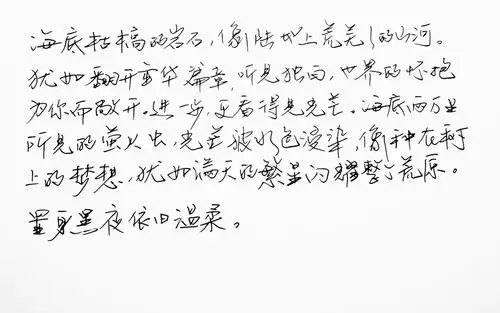 海底枯槁的岩石，像陆地上荒芜的山河。
犹如翻开章华篇章，听见独白，世界的怀抱
为你而敞开。进一步，更看得见光芒。海底两万里
所见的萤火虫，光芒被水色渲染，像种在
上的梦想，犹如满天的繁星闪耀整个荒原。
置身黑夜依旧温柔。